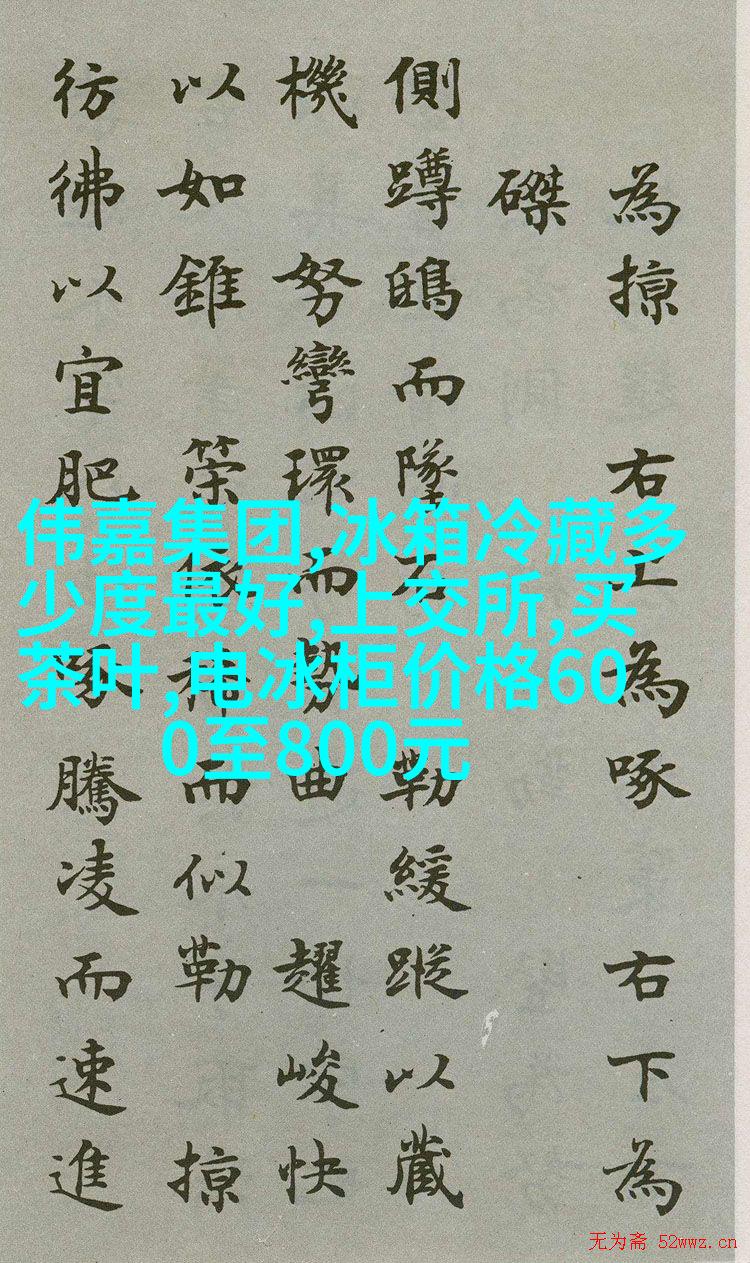 為掠 右上為啄 右下為
磔
側蹲鴟而墜石 勒緩蹤以藏
機 努彎環而勢曲 趯峻快
以如錐 策依稀而似勒 掠
彷彿以宜肥 啄騰凌而速進
伟嘉集团,冰箱冷藏多
少度最好,上交所,买
茶叶,电冰柜价格60
0至800元
无为斋 52wwz.cn